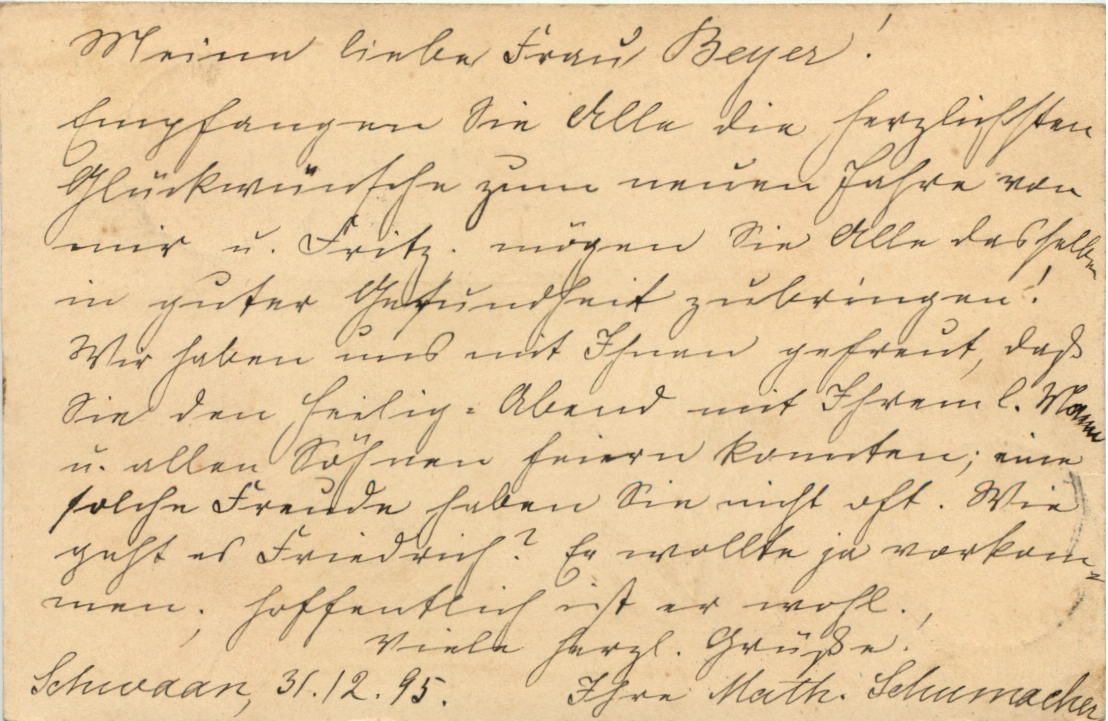 Meine liebe Frau Beyer!
Empfangen Sie Alle die herzlichsten
Glückwünsche zum neuen Jahre von
mir u. Fritz. mögen Sie Alle dasselbe
in guter Gesundheit zubringen!
Wir haben uns mit Ihnen gefreut, daß
Sie den heilig-Abend mit Ihrem l. Mann
u. allen Söhnen feiern konnten; eine
solche Freude haben Sie nicht oft. Wie
geht es Friedrich? Er wollte ja vorkom-
men; hoffentlich ist er wohl.
Viele herzl. Grüße!
Schwaan, 31.12.95. Ihre Math. Schumacher